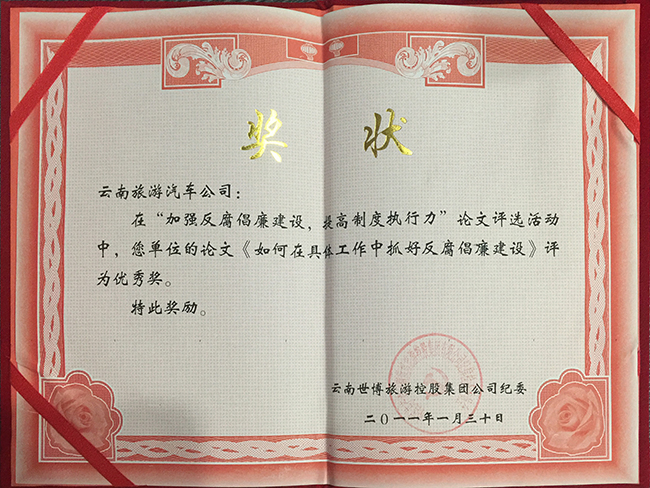 奖 状
云南旅游汽车公司：
在“加强反腐倡廉建设，提高制度执行力”论文评选活动
中，您单位的论文《如何在具体工作中抓好反腐倡廉建设》评
为优秀奖。
特此奖励。
云南世博旅游控股集团公司纪委
二〇一一年一月三十日